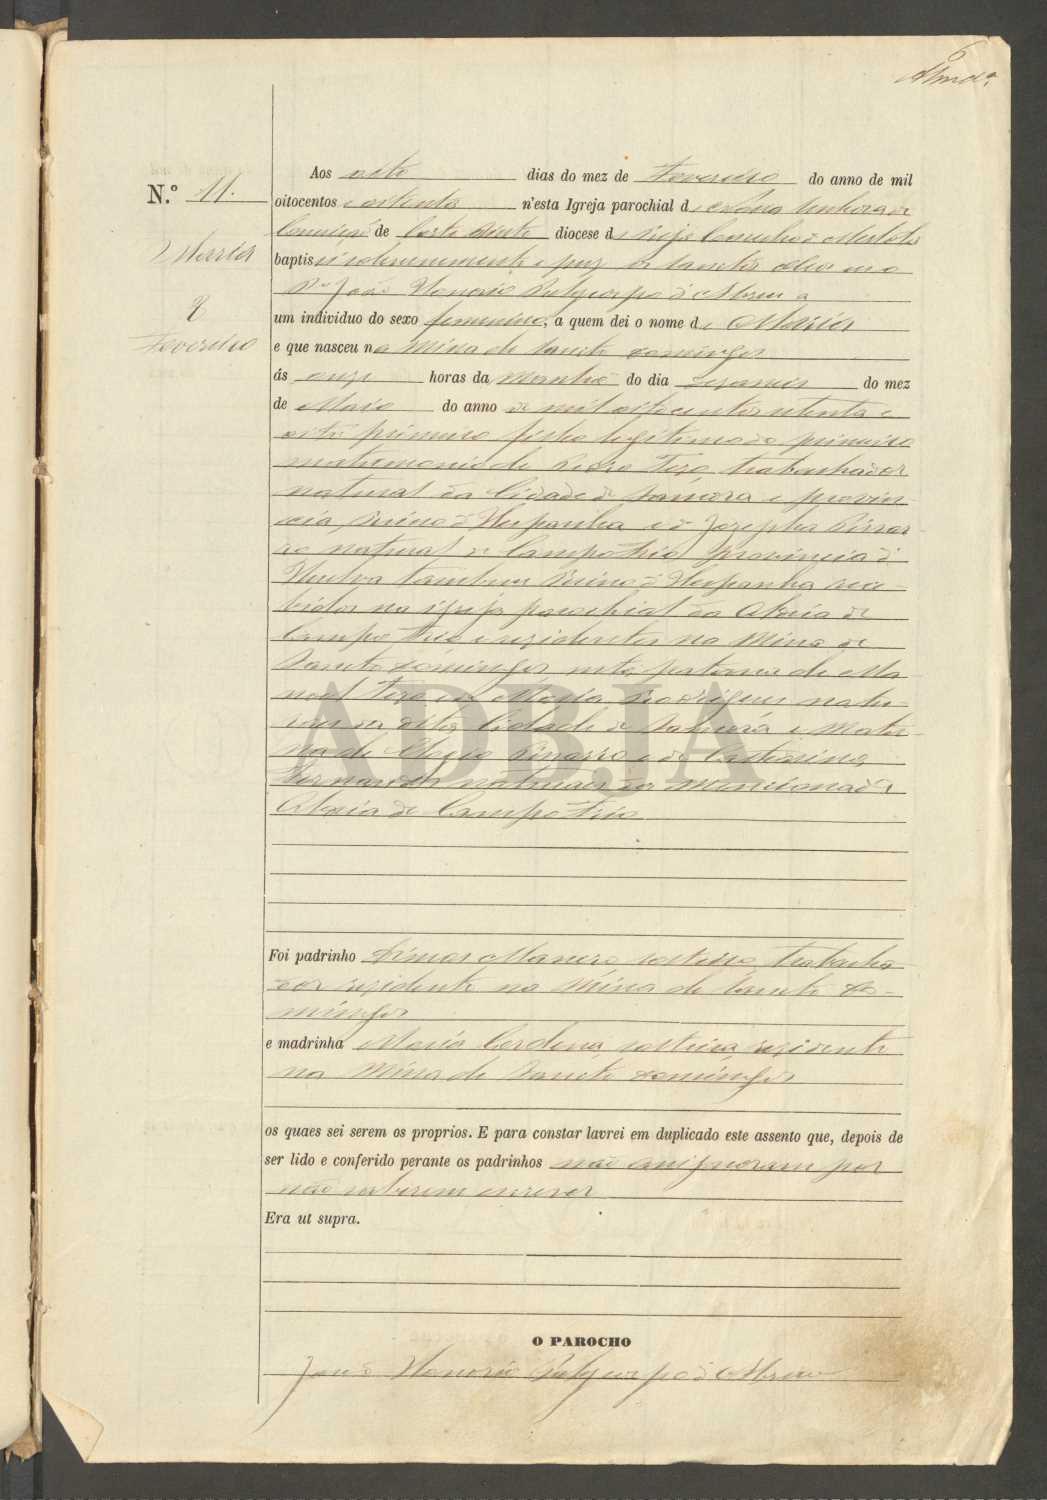 6
N.º 11.
Maria
8
Fevereiro
Aos oito dias do mez de Fevereiro do anno de mil
oitocentos e oitenta n'esta Igreja parochial de Nossa Senhora da
Conceição de Corte do Pinto diocese de Beja Concelho de Mertola
baptisei solemnemente e puz os sanctos oleos eu o
P.e João Honorio Polycarpo d'Abreu a
um individuo do sexo femenino, a quem dei o nome de Maria
e que nasceu na Mina de Sancto Domingos
ás onze horas da manhã do dia do mez
de Maio do anno de mil oitocentos setenta e
oito primeiro filho legitimo do primeiro
matrimonio de Pedro Tezo trabalhador
natural da Cidade de Samora e provin-
cia, Reino d'Hespanha e de Josepha Pizar-
ro natural de Campo Frio provincia d'
Huelva tambem Reino d'Hespanha rece-
bidos na igreja parochial da Aldeia de
Campo Frio e residentes na Mina de
Sancto Domingos neta paterna de Ma-
noel Tezo e de Maria Rodrigues natu-
raes da dita Cidade de Samora e mater-
na de Pizarro e de Catharina
Fernandes naturaes da mencionada
Aldeia de Campo Frio
ADBJA
Foi padrinho solteiro, trabalha-
dor residente na Mina de Sancto Do-
mingos
e madrinha Maria Cardena, solteira, residente
na Mina de Sancto Domingos
os quaes sei serem os proprios. E para constar lavrei em duplicado este assento que, depois de
ser lido e conferido perante os padrinhos não assignaram por
não saberem escrever
Era ut supra.
O PAROCHO
João Honorio Polycarpo d'Abreu